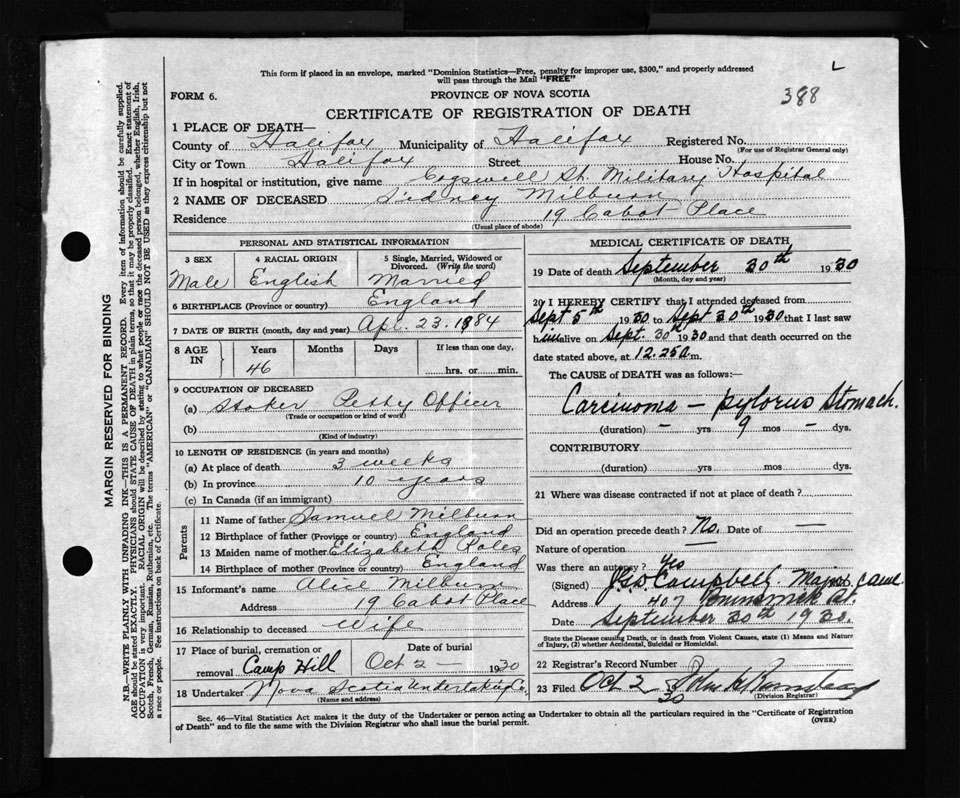 L
388
This form if placed in an envelope, marked "Dominion Statistics—Free, penalty for improper use, $300," and properly addressed
will pass through the Mail "FREE"
FORM 6.
PROVINCE OF NOVA SCOTIA
CERTIFICATE OF REGISTRATION OF DEATH
MARGIN RESERVED FOR BINDING
N.B.—WRITE PLAINLY WITH UNFADING INK—THIS IS A PERMANENT RECORD. Every item of information should be carefully supplied.
AGE should be stated EXACTLY. PHYSICIANS should STATE CAUSE OF DEATH in plain terms, so that it may be properly classified. Exact statement of
OCCUPATION is very important. RACIAL ORIGIN will be described by stating to what people or race the deceased person belonged, whether English, Irish,
Scotch, French, German, Russian, Ruthenian, etc. The terms "AMERICAN" or "CANADIAN" SHOULD NOT BE USED as they express citizenship but not
a race or people. See instructions on back of Certificate.
1 PLACE OF DEATH—
County of Halifax Municipality of Halifax Registered No.
(For use of Registrar General only)
City or Town Halifax Street House No.
If in hospital or institution, give name Cogswell St. Military Hospital
2 NAME OF DECEASED Sidney Milburn
Residence 19 Cabot Place
(Usual place of abode)
PERSONAL AND STATISTICAL INFORMATION
3 SEX
Male
4 RACIAL ORIGIN
English
5 Single, Married, Widowed or
Divorced. (Write the word)
Married
6 BIRTHPLACE (Province or country) England
7 DATE OF BIRTH (month, day and year) Apl. 23. 1884
8 AGE IN
Years Months Days If less than one day,
46 hrs. or min.
9 OCCUPATION OF DECEASED
(a) Stoker Petty Officer
(Trade or occupation or kind of work)
(b)
(Kind of industry)
10 LENGTH OF RESIDENCE (in years and months)
(a) At place of death 3 weeks
(b) In province 10 years
(c) In Canada (if an immigrant)
Parents
11 Name of father Samuel Milburn
12 Birthplace of father (Province or country) England
13 Maiden name of mother Elizabeth Poles
14 Birthplace of mother (Province or country) England
15 Informant's name Alice Milburn
Address 19 Cabot Place
16 Relationship to deceased Wife
17 Place of burial, cremation or
removal Camp Hill
Date of burial
Oct 2 — 1930
18 Undertaker Nova Scotia Undertaking Co.
(Name and address)
MEDICAL CERTIFICATE OF DEATH
19 Date of death September 30th 1930
(Month, day and year)
20 I HEREBY CERTIFY that I attended deceased from
Sept 5th 1930 to Sept 30th 1930 that I last saw
him alive on Sept. 30th 1930 and that death occurred on the
date stated above, at 12.25 a.m.
The CAUSE of DEATH was as follows:
Carcinoma — pylorus Stomach.
(duration) — yrs 9 mos — dys.
CONTRIBUTORY
(duration) yrs. mos. dys.
21 Where was disease contracted if not at place of death?
Did an operation precede death? No. Date of —
Nature of operation —
Was there an autopsy? Yes
(Signed) Campbell. Major
Address 407
Date September 30th 1930.
State the Disease causing Death, or in death from Violent Causes, state (1) Means and Nature
of Injury, (2) whether Accidental, Suicidal or Homicidal.
22 Registrar's Record Number
23 Filed Oct 2 1930
(Division Registrar)
Sec. 46—Vital Statistics Act makes it the duty of the Undertaker or person acting as Undertaker to obtain all the particulars required in the "Certificate of Registration
of Death" and to file the same with the Division Registrar who shall issue the burial permit.
(OVER)